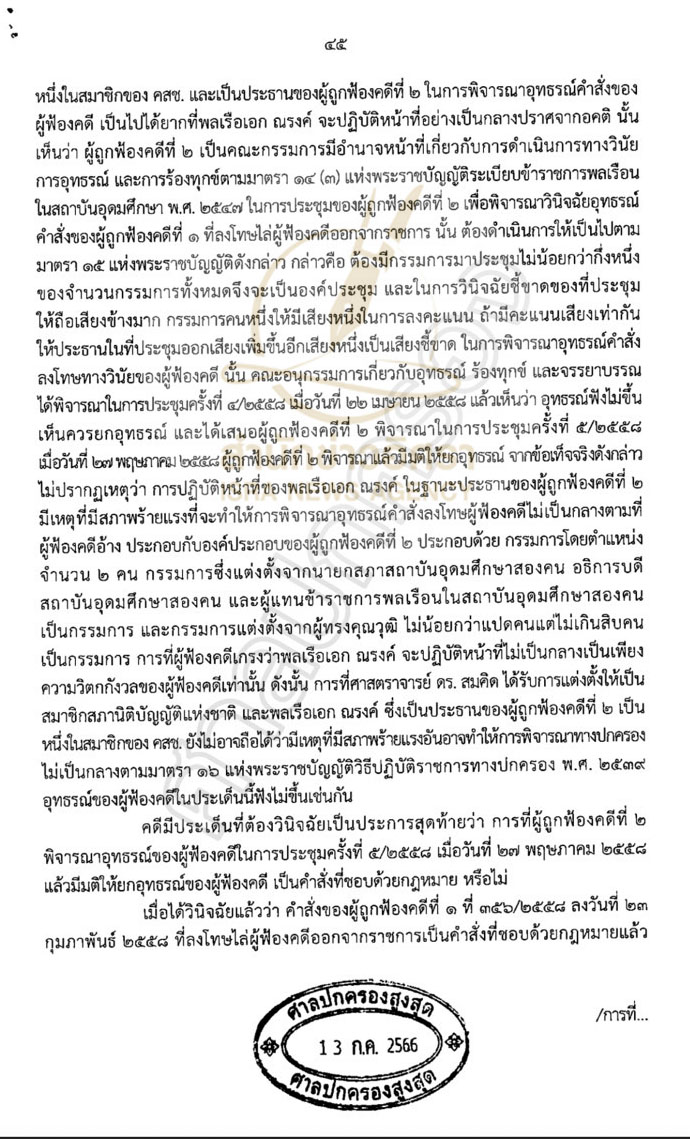 ๔๕
หนึ่งในสมาชิกของ คสช. และเป็นประธานของผู้ถูกฟ้องคดีที่ ๒ ในการพิจารณาอุทธรณ์คำสั่งของ
ผู้ฟ้องคดี เป็นไปได้ยากที่พลเรือเอก ณรงค์ จะปฏิบัติหน้าที่อย่างเป็นกลางปราศจากอคติ นั้น
เห็นว่า ผู้ถูกฟ้องคดีที่ ๒ เป็นคณะกรรมการมีอำนาจหน้าที่เกี่ยวกับการดำเนินการทางวินัย
การอุทธรณ์ และการร้องทุกข์ตามมาตรา ๑๔ (๓) แห่งพระราชบัญญัติระเบียบข้าราชการพลเรือน
ในสถาบันอุดมศึกษา พ.ศ. ๒๕๔๗ ในการประชุมของผู้ถูกฟ้องคดีที่ ๒ เพื่อพิจารณาวินิจฉัยอุทธรณ์
คำสั่งของผู้ถูกฟ้องคดีที่ ๑ ที่ลงโทษไล่ผู้ฟ้องคดีออกจากราชการ นั้น ต้องดำเนินการให้เป็นไปตาม
มาตรา ๑๕ แห่งพระราชบัญญัติดังกล่าว กล่าวคือ ต้องมีกรรมการมาประชุมไม่น้อยกว่ากึ่งหนึ่ง
ของจำนวนกรรมการทั้งหมดจึงจะเป็นองค์ประชุม และในการวินิจฉัยชี้ขาดของที่ประชุม
ให้ถือเสียงข้างมาก กรรมการคนหนึ่งให้มีเสียงหนึ่งในการลงคะแนน ถ้ามีคะแนนเสียงเท่ากัน
ให้ประธานในที่ประชุมออกเสียงเพิ่มขึ้นอีกเสียงหนึ่งเป็นเสียงชี้ขาด ในการพิจารณาอุทธรณ์คำสั่ง
ลงโทษทางวินัยของผู้ฟ้องคดี นั้น คณะอนุกรรมการเกี่ยวกับอุทธรณ์ ร้องทุกข์ และจรรยาบรรณ
ได้พิจารณาในการประชุมครั้งที่ ๔/๒๕๕๘ เมื่อวันที่ ๒๒ เมษายน ๒๕๕๘ แล้วเห็นว่า อุทธรณ์ฟังไม่ขึ้น
เห็นควรยกอุทธรณ์ และได้เสนอผู้ถูกฟ้องคดีที่ ๒ พิจารณาในการประชุมครั้งที่ ๕/๒๕๕๘
เมื่อวันที่ ๒๗ พฤษภาคม ๒๕๕๘ ผู้ถูกฟ้องคดีที่ ๒ พิจารณาแล้วมีมติให้ยกอุทธรณ์ จากข้อเท็จจริงดังกล่าว
ไม่ปรากฏเหตุว่า การปฏิบัติหน้าที่ของพลเรือเอก ณรงค์ ในฐานะประธานของผู้ถูกฟ้องคดีที่ ๒
มีเหตุที่มีสภาพร้ายแรงที่จะทำให้การพิจารณาอุทธรณ์คำสั่งลงโทษผู้ฟ้องคดีไม่เป็นกลางตามที่
ผู้ฟ้องคดีอ้าง ประกอบกับองค์ประกอบของผู้ถูกฟ้องคดีที่ ๒ ประกอบด้วย กรรมการโดยตำแหน่ง
จำนวน ๒ คน กรรมการซึ่งแต่งตั้งจากนายกสภาสถาบันอุดมศึกษาสองคน อธิการบดี
สถาบันอุดมศึกษาสองคน และผู้แทนข้าราชการพลเรือนในสถาบันอุดมศึกษาสองคน
เป็นกรรมการ และกรรมการแต่งตั้งจากผู้ทรงคุณวุฒิ ไม่น้อยกว่าแปดคนแต่ไม่เกินสิบคน
เป็นกรรมการ การที่ผู้ฟ้องคดีเกรงว่าพลเรือเอก ณรงค์ จะปฏิบัติหน้าที่ไม่เป็นกลางเป็นเพียง
ความวิตกกังวลของผู้ฟ้องคดีเท่านั้น ดังนั้น การที่ศาสตราจารย์ ดร. สมคิด ได้รับการแต่งตั้งให้เป็น
สมาชิกสภานิติบัญญัติแห่งชาติ และพลเรือเอก ณรงค์ ซึ่งเป็นประธานของผู้ถูกฟ้องคดีที่ ๒ เป็น
หนึ่งในสมาชิกของ คสช. ยังไม่อาจถือได้ว่ามีเหตุที่มีสภาพร้ายแรงอันอาจทำให้การพิจารณาทางปกครอง
ไม่เป็นกลางตามมาตรา ๑๖ แห่งพระราชบัญญัติวิธีปฏิบัติราชการทางปกครอง พ.ศ. ๒๕๓๙
อุทธรณ์ของผู้ฟ้องคดีในประเด็นนี้ฟังไม่ขึ้นเช่นกัน
คดีมีประเด็นที่ต้องวินิจฉัยเป็นประการสุดท้ายว่า การที่ผู้ถูกฟ้องคดีที่ ๒
พิจารณาอุทธรณ์ของผู้ฟ้องคดีในการประชุมครั้งที่ ๕/๒๕๕๘ เมื่อวันที่ ๒๗ พฤษภาคม ๒๕๕๘
แล้วมีมติให้ยกอุทธรณ์ของผู้ฟ้องคดี เป็นคำสั่งที่ชอบด้วยกฎหมาย หรือไม่
เมื่อได้วินิจฉัยแล้วว่า คำสั่งของผู้ถูกฟ้องคดีที่ ๑ ที่ ๓๕๖/๒๕๕๘ ลงวันที่ ๒๓
กุมภาพันธ์ ๒๕๕๘ ที่ลงโทษไล่ผู้ฟ้องคดีออกจากราชการเป็นคำสั่งที่ชอบด้วยกฎหมายแล้ว
/การที่...
ศาลปกครองสูงสุด
13 ก.ค. 2566
ศาลปกครองสูงสุด